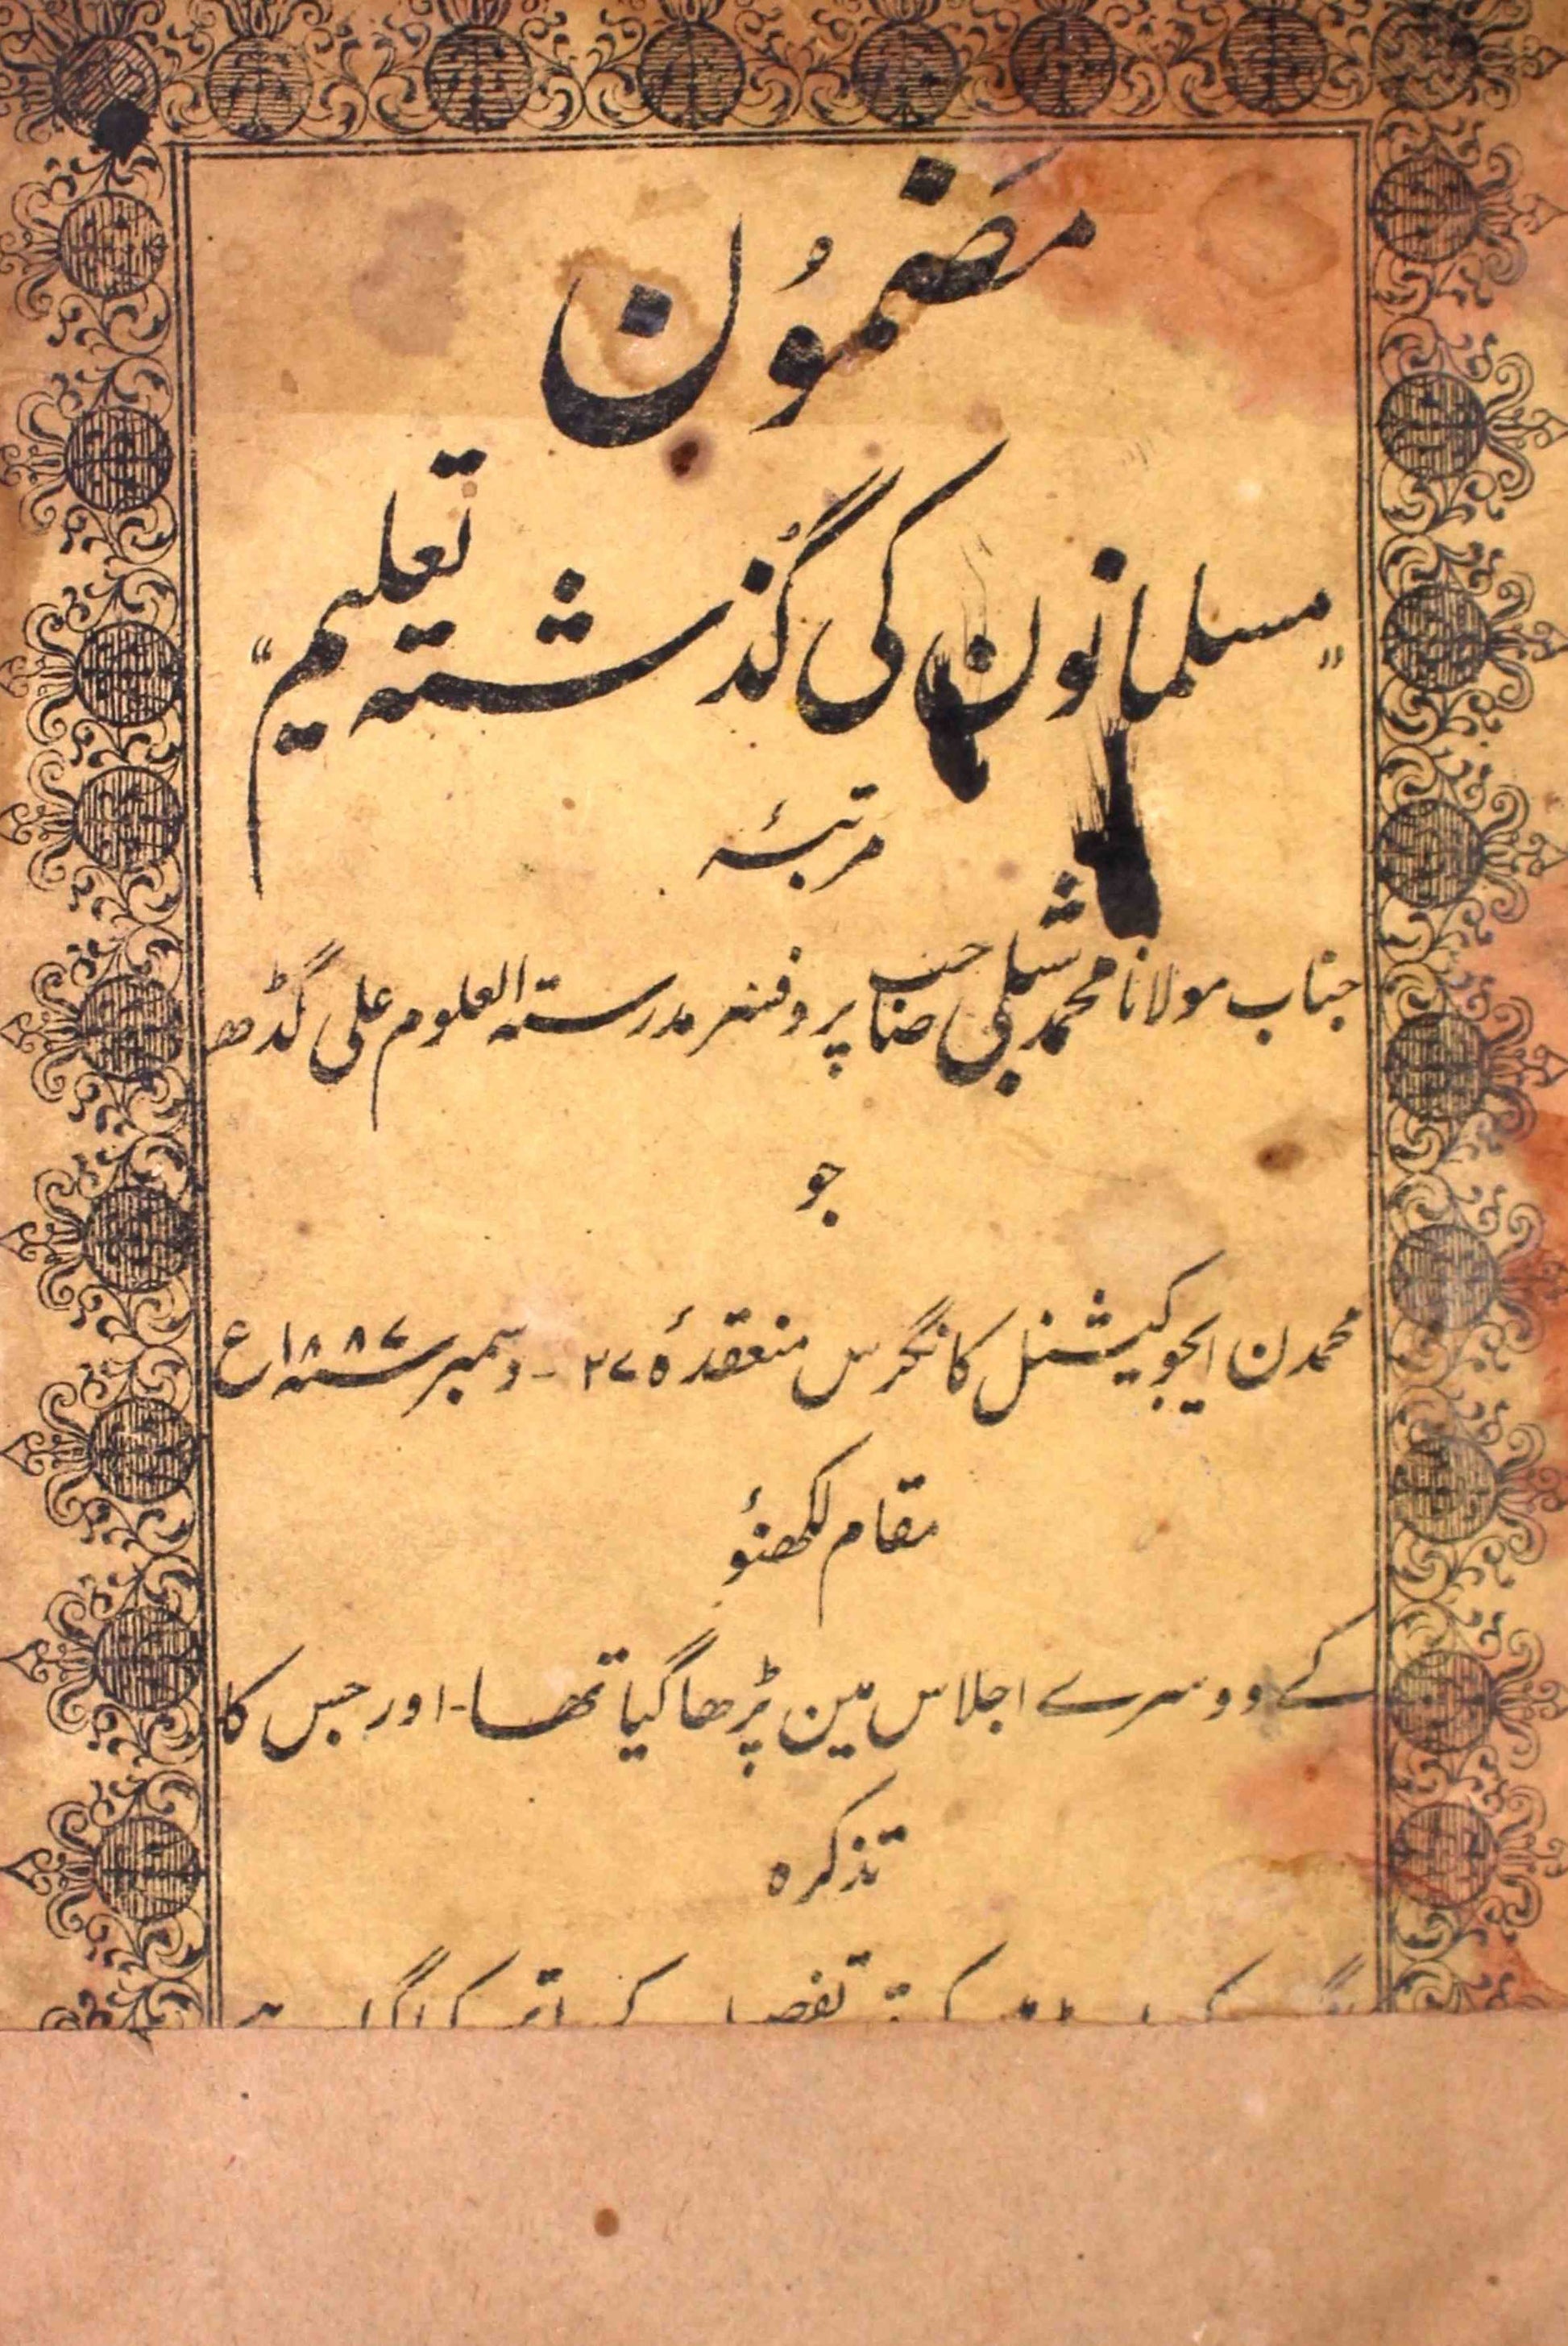 مضمُون
"مسلمانون کی گُذشتہ تعلیم"
مرتبۂ
جناب مولانا محمد شبلی صاحب پروفسر مدرستہ العلوم علی گڈھ
جو
محمدن ایجوکیشنل کانگرس منعقدۂ ۲۷ - دسمبر سنہ ۱۸۸۷ ع
مقام لکھنؤ
کے دوسرے اجلاس مین پڑھا گیا تھا - اور جس کا
تذکرہ